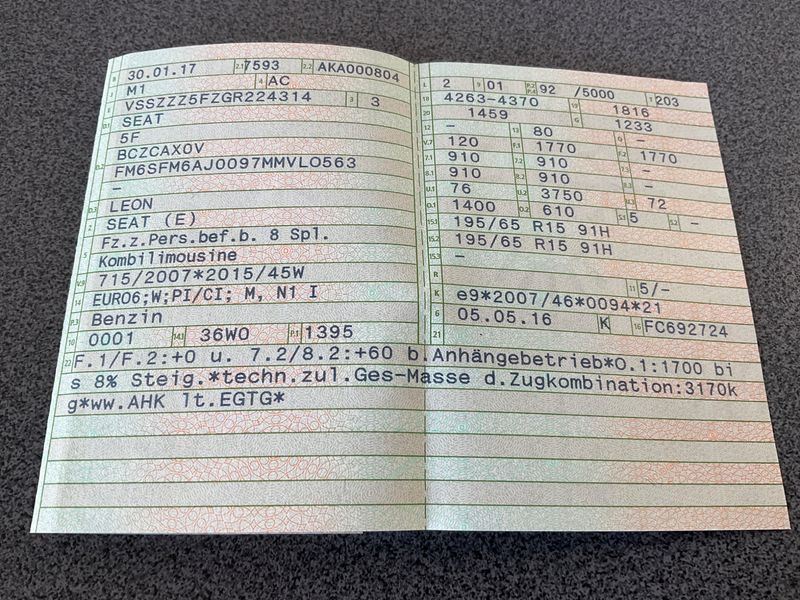 B 30.01.17 2.1 7593 2.2 AKA000804
J M1 4 AC
E VSSZZZ5FZGR224314 3 3
D.1 SEAT
5F
D.2 BCZCAX0V
FM6SFM6AJ0097MMVLO563
–
D.3 LEON
2 SEAT (E)
5 Fz.z.Pers.bef.b. 8 Spl.
Kombilimousine
V.9 715/2007*2015/45W
14 EURO6;W;PI/CI; M, N1 I
P.3 Benzin
10 0001 14.1 36W0 P.1 1395
L 2 9 01 P.2 P.4 92 /5000 T 203
18 4263-4370 19 1816
20 1459 G 1233
12 – 13 80 Q –
V.7 120 F.1 1770 F.2 1770
7.1 910 7.2 910 7.3 –
8.1 910 8.2 910 8.3 –
U.1 76 U.2 3750 U.3 72
O.1 1400 O.2 610 S.1 5 S.2 –
15.1 195/65 R15 91H
15.2 195/65 R15 91H
15.3 –
R 11 5/-
K e9*2007/46*0094*21
6 05.05.16 K 16 FC692724
21
22 F.1/F.2:+0 u. 7.2/8.2:+60 b.Anhängebetrieb*O.1:1700 bi
s 8% Steig.*techn.zul.Ges-Masse d.Zugkombination:3170k
g*ww.AHK lt.EGTG*